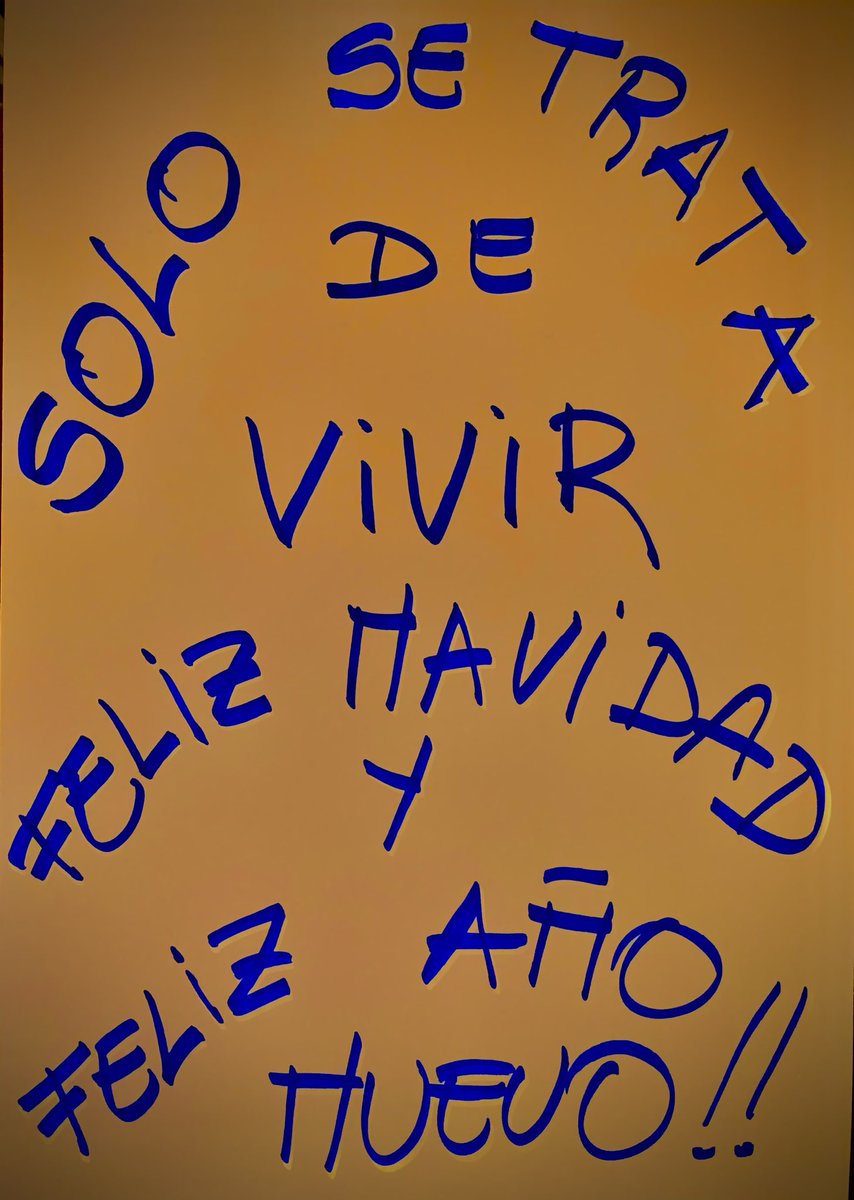 SOLO SE TRATA
DE
ViViR
FELiZ NAViDAD
Y
FELiZ AÑO
NUEVO!!